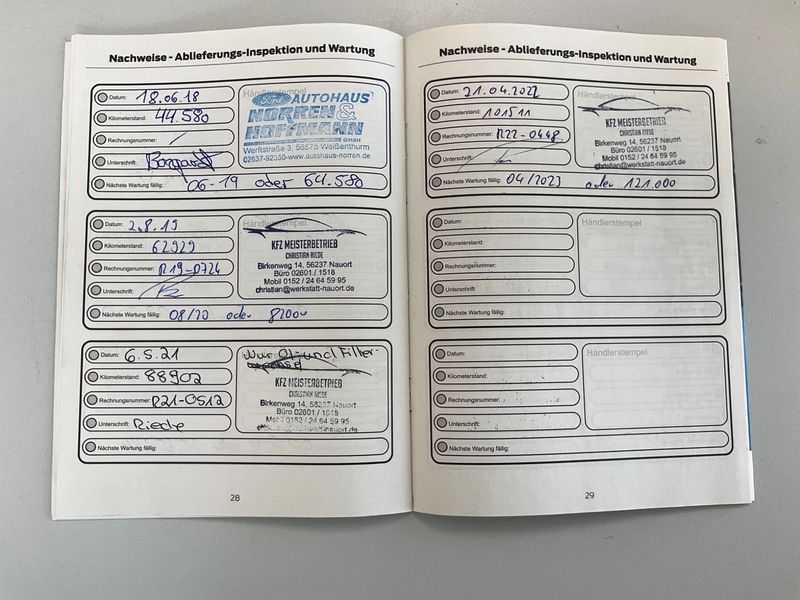 Nachweise - Ablieferungs-Inspektion und Wartung
Datum: 18.06.18
Kilometerstand: 44.580
Rechnungsnummer: /
Unterschrift: Borgardt
Nächste Wartung fällig: 06-19 oder 64.580
Händlerstempel
Ford AUTOHAUS
NORREN &
HOFFMANN
GMBH
Werftstraße 3, 56575 Weißenthurm
02637-92350-www.autohaus-norren.de
Datum: 2.8.19
Kilometerstand: 62929
Rechnungsnummer: R19-0724
Unterschrift:
Nächste Wartung fällig: 08/20 oder 82000
Händlerstempel
KFZ MEISTERBETRIEB
CHRISTIAN RIEDE
Birkenweg 14, 56237 Nauort
Büro 02601 / 1518
Mobil 0152 / 24 64 59 95
christian@werkstatt-nauort.de
Datum: 6.5.21
Kilometerstand: 88902
Rechnungsnummer: R21-0512
Unterschrift: Riede
Nächste Wartung fällig:
Nur Öl- und Filter-
wechsel
KFZ MEISTERBETRIEB
CHRISTIAN RIEDE
Birkenweg 14, 56237 Nauort
Büro 02601 / 1518
Mobil 0152 / 24 64 59 95
28
Nachweise - Ablieferungs-Inspektion und Wartung
Datum: 21.04.2022
Kilometerstand: 101511
Rechnungsnummer: R22-0448
Unterschrift:
Nächste Wartung fällig: 04/2023 oder 121.000
Händlerstempel
KFZ MEISTERBETRIEB
CHRISTIAN RIEDE
Birkenweg 14, 56237 Nauort
Büro 02601 / 1518
Mobil 0152 / 24 64 59 95
christian@werkstatt-nauort.de
Datum:
Kilometerstand:
Rechnungsnummer:
Unterschrift:
Nächste Wartung fällig:
Händlerstempel
Datum:
Kilometerstand:
Rechnungsnummer:
Unterschrift:
Nächste Wartung fällig:
Händlerstempel
29